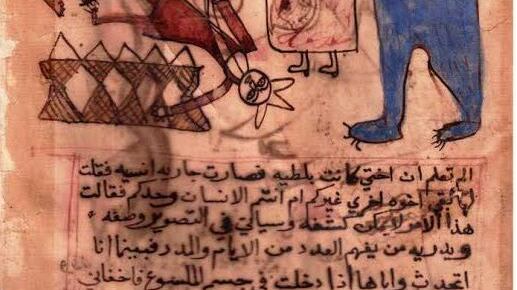 الم تعلم ان اختي كانت بلطيه فصارت جاريه انسيه فقلت
اخوه اخري غيركم ام انتم الانسان وحدكم فقالت
هذا الامر لا يمكن كشفه وسياتي في التصوير وصفه
ويدريه من يفهم العدد من الايام والمدد فبينما انا
اتحدث واياها اذا دخلت في جسم الملسوع فاخفاني